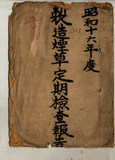 昭和十六年度
製造煙草定期檢査報告